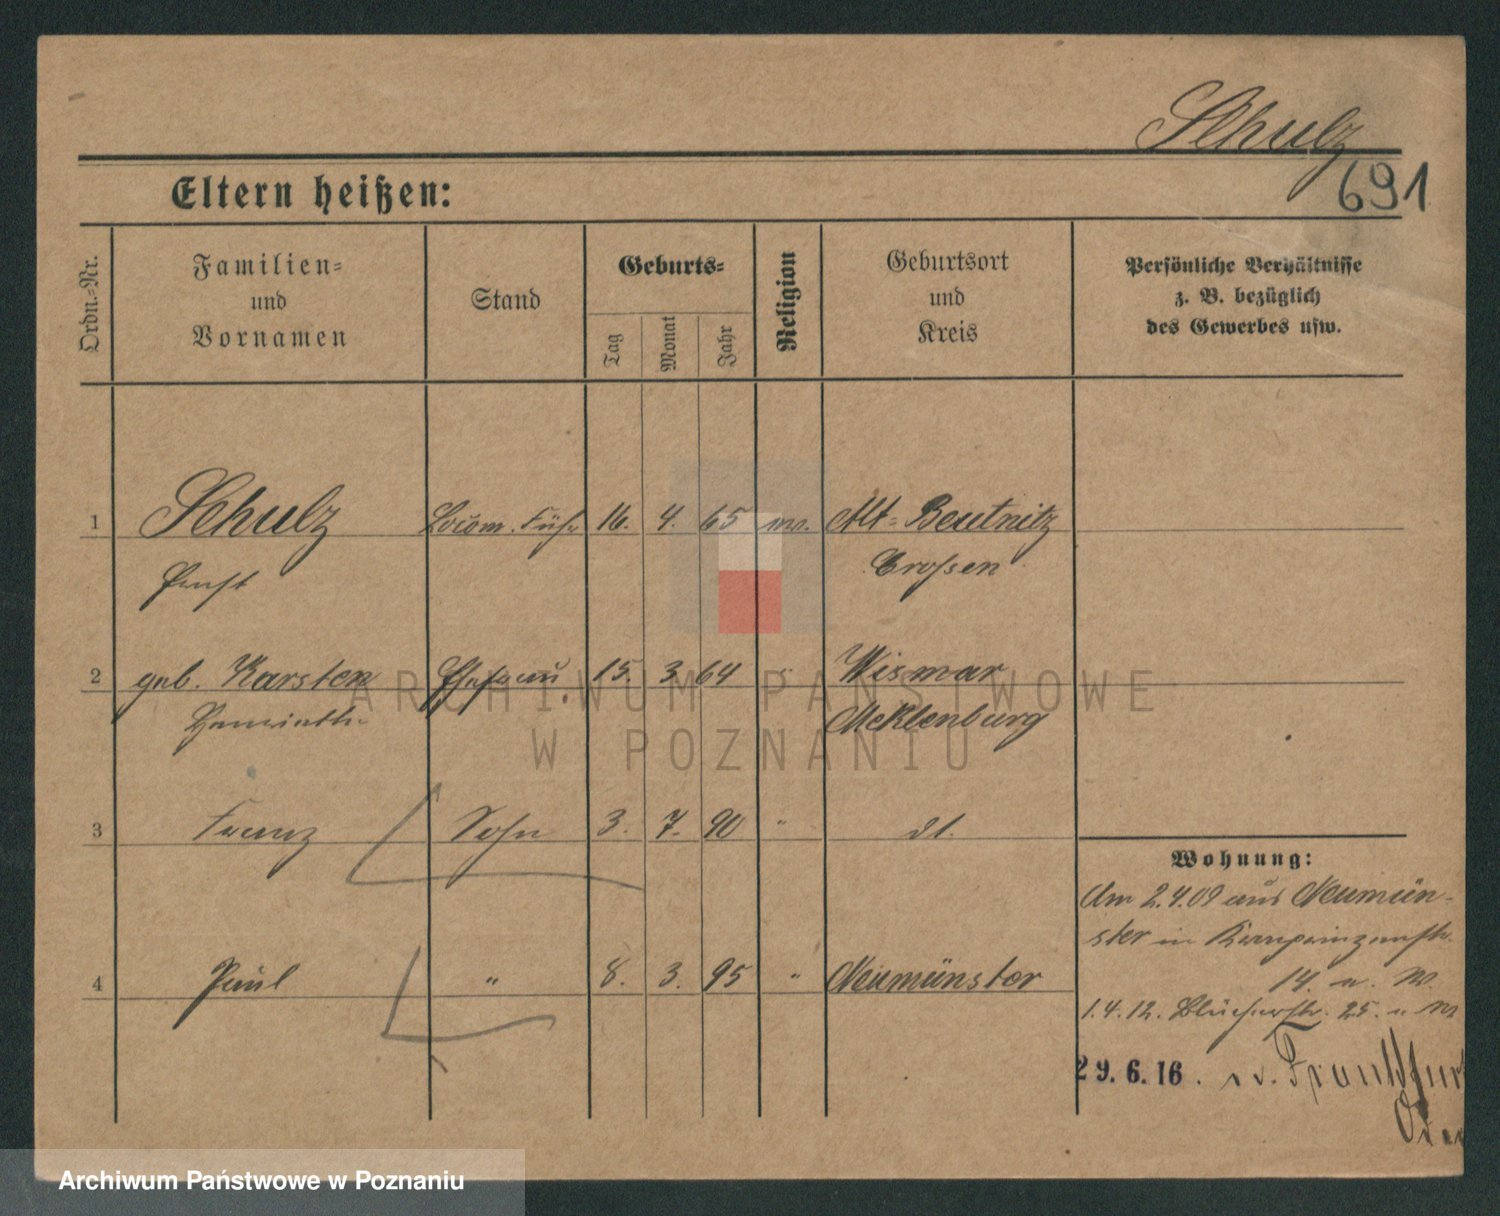 Schulz
691
Eltern heißen:
Ordn.-Nr.
Familien-
und
Vornamen
Stand
Geburts-
Tag
Monat
Jahr
Religion
Geburtsort
und
Kreis
Persönliche Verhältnisse
z. B. bezüglich
des Gewerbes usw.
1 Schulz Locom. Füh 16. 4. 65 Alt-Beutnitz
Ernst Crossen
2 geb. Karsten Ehefrau 15. 3. 64 " Wismar
Meklenburg
3 Franz Sohn 3. 7. 90 " dt.
4 Paul " 8. 3. 95 " Neumünster
Wohnung:
Am 2.4.09 aus Neumün-
ster in Kronprinzenstr.
14.
1.4.12. Blücherstr. 25.
29.6.16. Frankfurt
Oder
ARCHIWUM PAŃSTWOWE
W POZNANIU
Archiwum Państwowe w Poznaniu